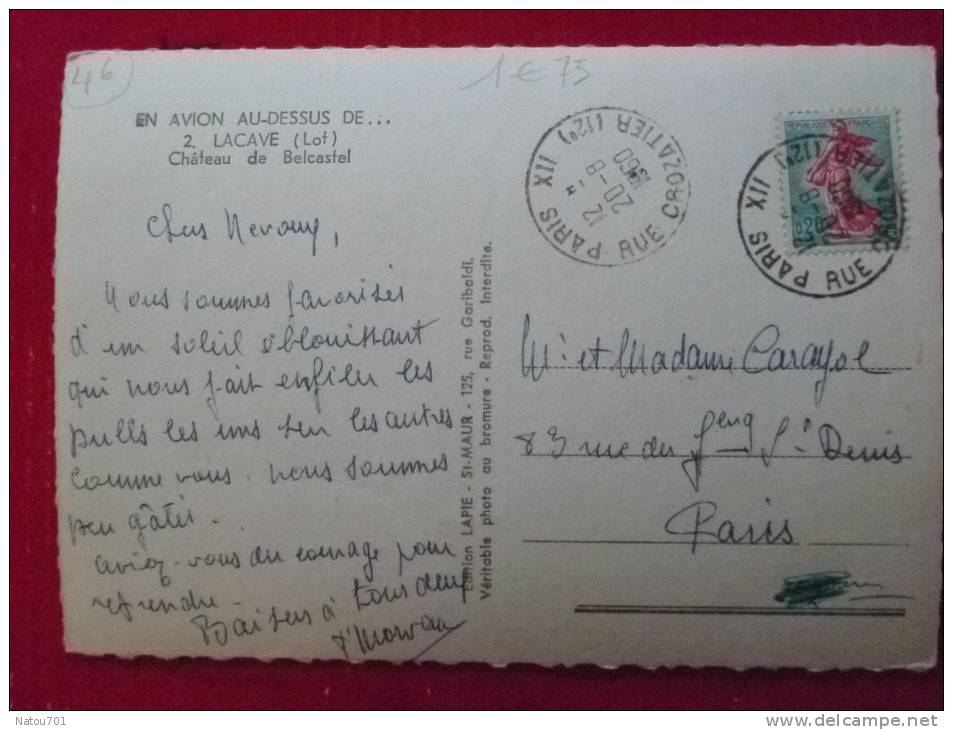 46
1 € 75
EN AVION AU-DESSUS DE...
2. LACAVE (Lot)
Château de Belcastel
Chers Neveux,
Nous sommes favorisés
d'un soleil éblouissant
qui nous fait enfiler les
pulls les uns sur les autres
comme vous. nous sommes
peu gâtés.
aviez-vous du courage pour
reprendre.
Baisers à tous deux
Edition LAPIE - St-MAUR - 125, rue Garibaldi.
Véritable photo au bromure - Reprod. Interdite.
PARIS XII RUE CROZATIER (12e)
12 H
20-8
1960
REPUBLIQUE FRANÇAISE
0,20
PARIS XII RUE CROZATIER (12e)
Mr et Madame Carayol
83 rue du fbg St Denis
Paris
Natou701
www.delcampe.net